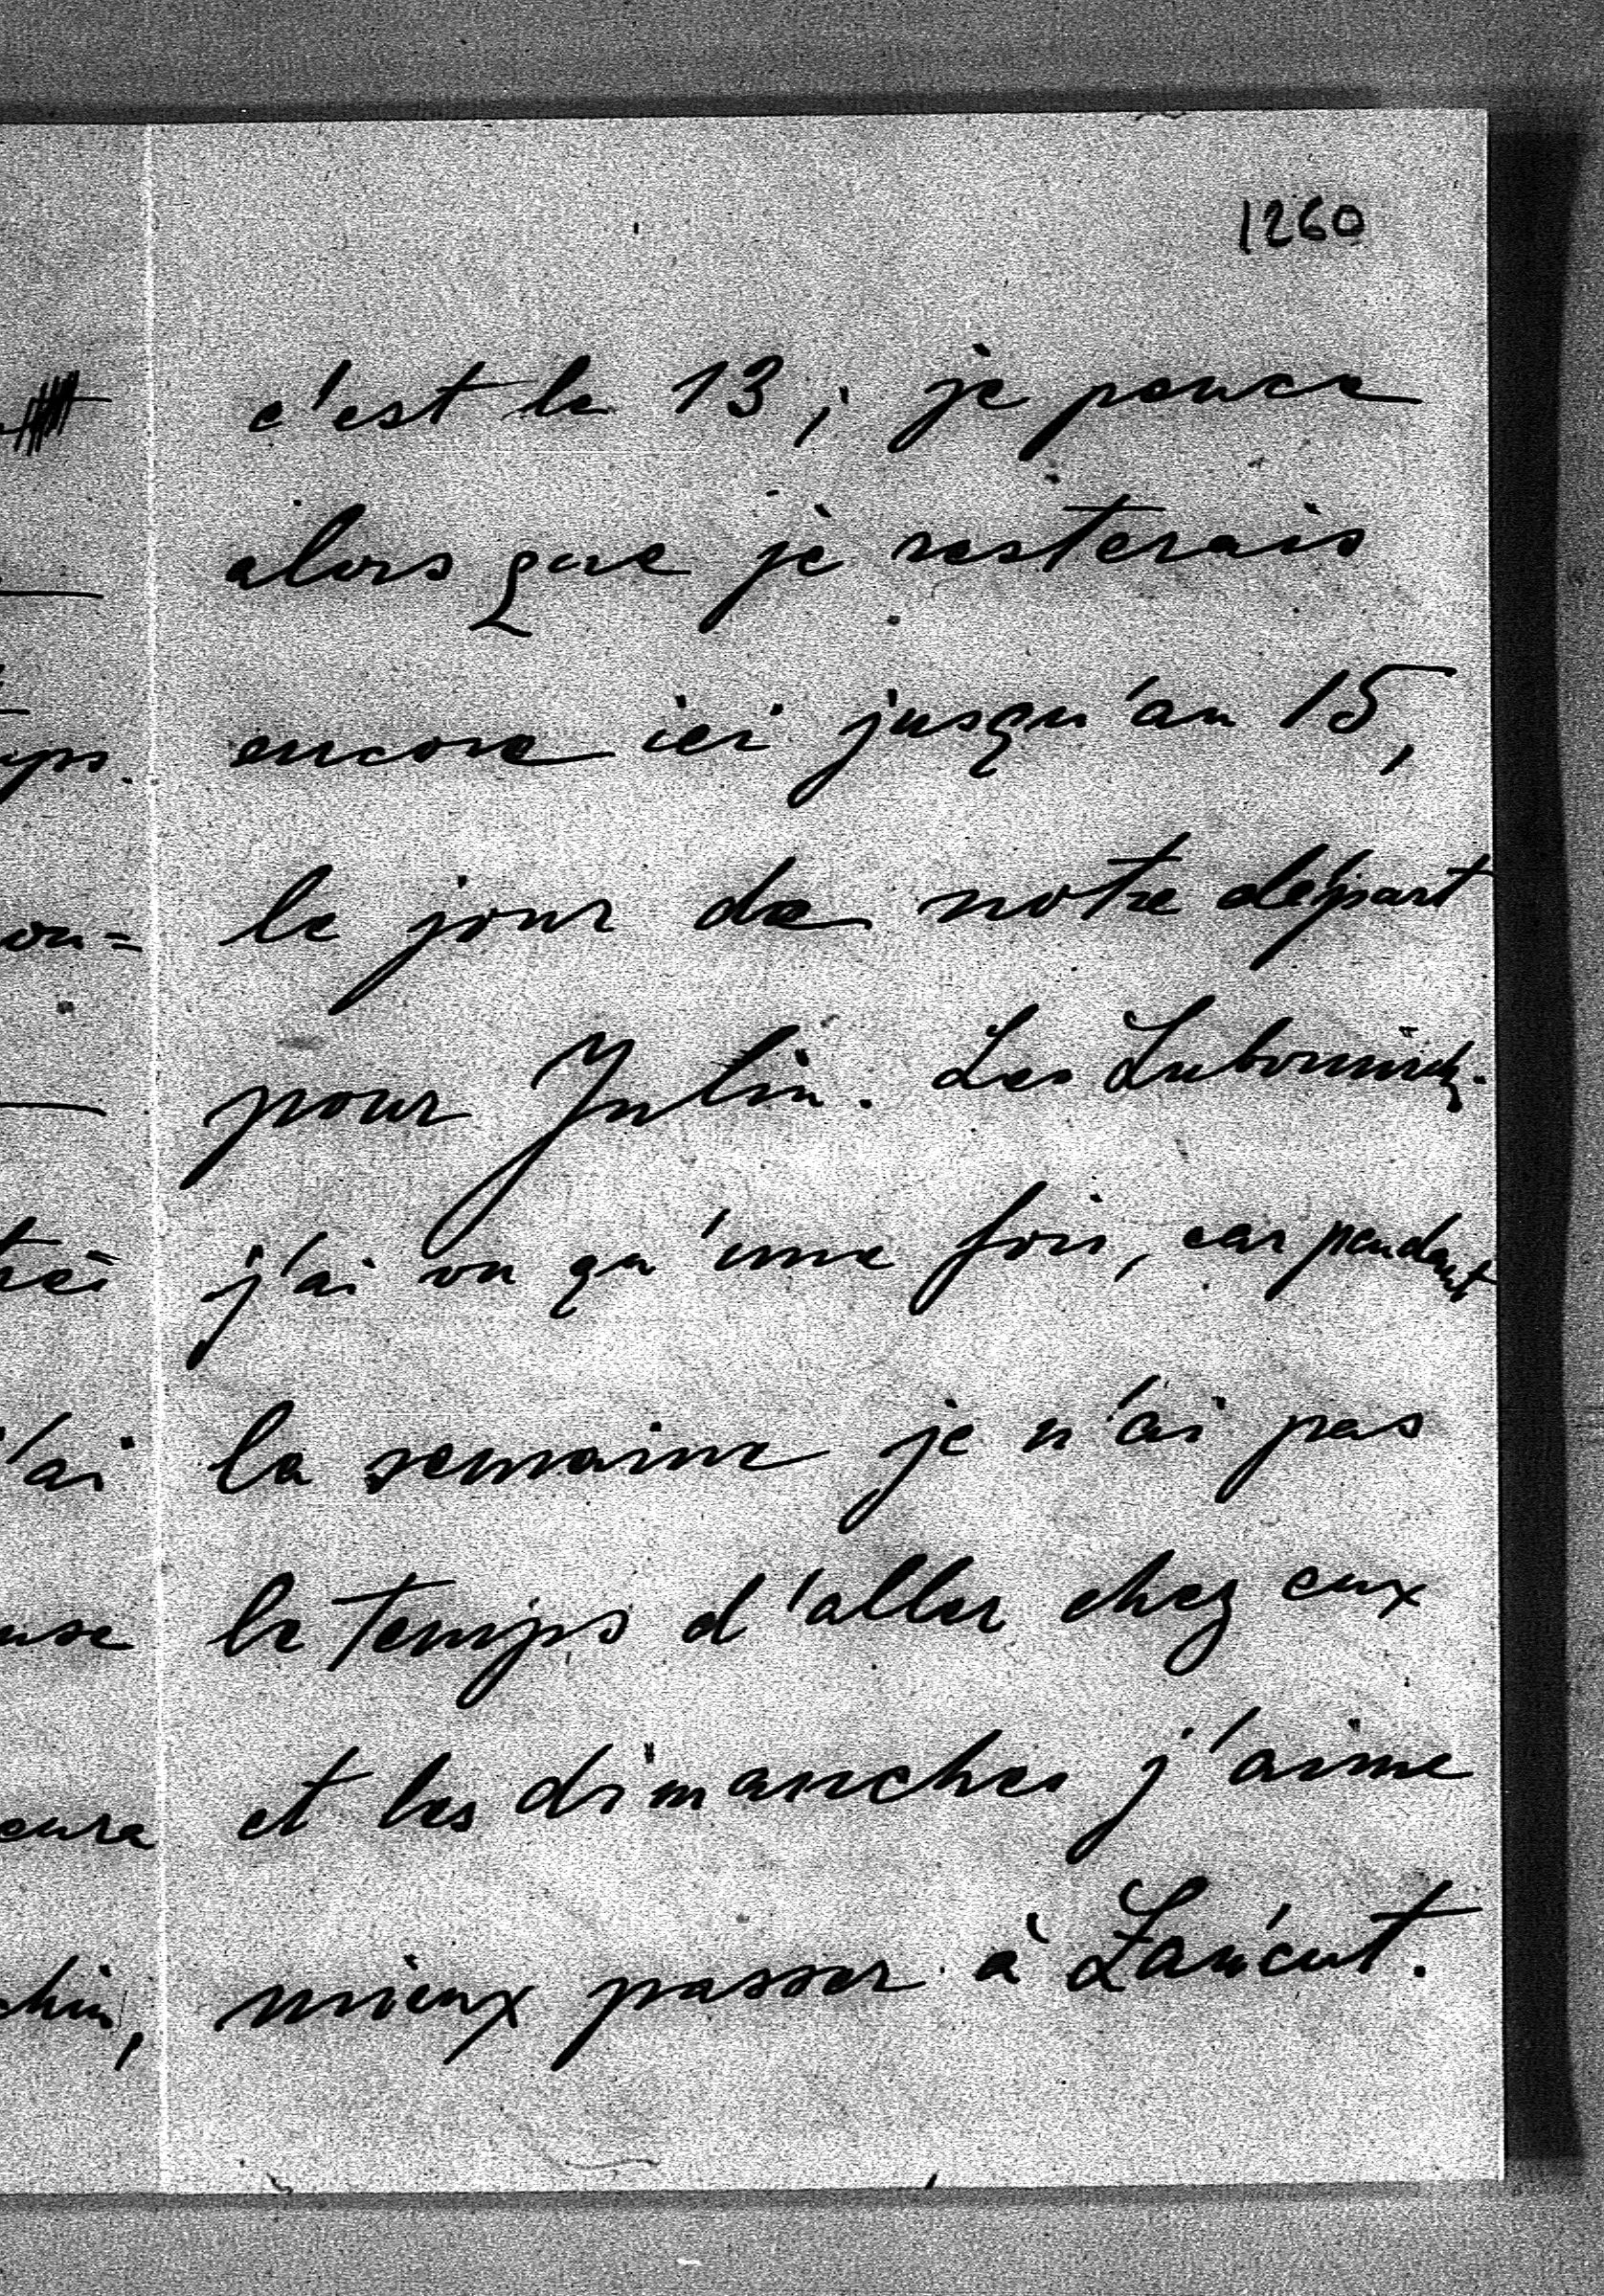 1260
c'est le 13; je pence
alors que je resterais
encore ici jusqu'au 15,
le jour de notre départ
pour Julin. Les Lubomirsk.
j'ai vu qu'une fois, car pendant
la semaine je n'ai pas
le temps d'aller chez eux
et les dimanches j'aime
mieux passer à Łańcut.